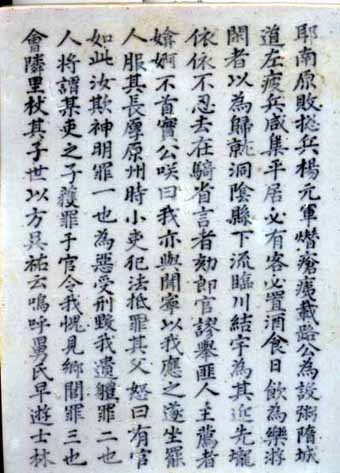 耶南原敗搃兵楊元軍噆瘡痍載路公為設粥隋城
道左疲兵咸集平居必有客必置酒食日飲為樂游
閑者以為歸就洞陰縣下流臨川結宇為其近先壠
依依不忍去在騎省言者劾郎官謬舉匪人主薦者
媕婀不首實公咲曰我亦與聞寧以我應之遂坐罷
人服其長厚原州時小吏犯法抵罪其父怒曰有官
如此汝欺神明罪一也為惡受刑毀我遺軆罪二也
人將謂某吏之子獲罪于官令我愧見鄉閭罪三也
會隣里杖其子世以方吳祐云嗚呼舅氏早遊士林